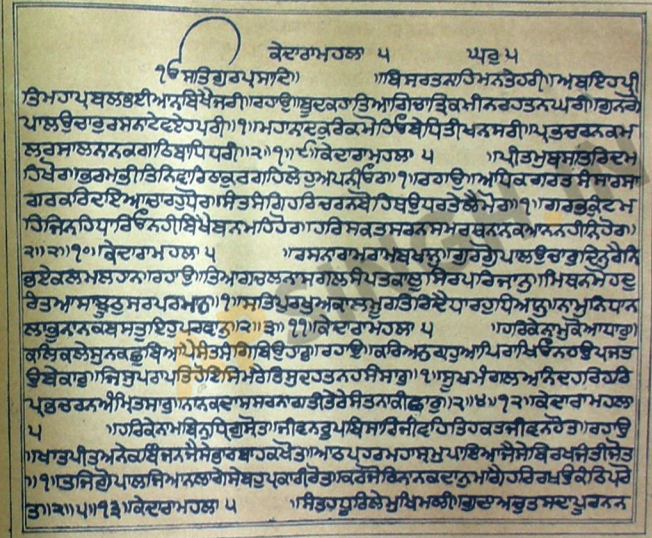 ਕੇਦਾਰਾਮਹਲਾ ੫ ਘਰੁ ੫
ੴਸਤਿਗੁਰਪ੍ਰਸਾਦਿ॥ ॥ਬਿਸਰਤਨਾਹਿਮਨਤੇਹਰੀ॥ਅਬਇਹਪ੍ਰੀ
ਤਿਮਹਾਪ੍ਰਬਲਭਈਆਨਬਿਖੈਜਰੀ॥ਰਹਾਉ॥ਬੂੰਦਕਹਾਤਿਆਗਿਚਾਤ੍ਰਿਕਮੀਨਰਹਤਨਘਰੀ॥ਗੁਨਗੋ
ਪਾਲਉਚਾਰੁਰਸਨਾਟੇਵਏਹਪਰੀ॥੧॥ਮਹਾਨਾਦਕੁਰੰਕਮੋਹਿਓਬੇਧਿਤੀਖਨਸਰੀ॥ਪ੍ਰਭਚਰਨਕਮ
ਲਰਸਾਲਨਾਨਕਗਾਠਿਬਾਧਿਧਰੀ॥੨॥੧॥੯॥ਕੇਦਾਰਾਮਹਲਾ ੫ ॥ਪ੍ਰੀਤਮਬਸਤਰਿਦਮ
ਹਿਖੋਰ॥ਭਰਮਭੀਤਿਨਿਵਾਰਿਠਾਕੁਰਗਹਿਲੇਹੁਅਪਨੀਓਰ॥੧॥ਰਹਾਉ॥ਅਧਿਕਗਰਤਸੰਸਾਰਸਾ
ਗਰਕਰਿਦਇਆਚਾਰਹੁਧੋਰ॥ਸੰਤਸੰਗਿਹਰਿਚਰਨਬੋਹਿਥਉਧਰਤੇਲੈਮੋਰ॥੧॥ਗਰਭਕੁੰਟਮ
ਹਿਜਿਨਹਿਧਾਰਿਓਨਹੀਬਿਖੈਬਨਮਹਿਹੋਰ॥ਹਰਿਸਕਤਸਰਨਸਮਰਥਨਾਨਕਆਨਨਹੀਨਿਹੋਰ॥
੨॥੨॥੧੦॥ਕੇਦਾਰਾਮਹਲਾ ੫ ॥ਰਸਨਾਰਾਮਰਾਮਬਖਾਨੁ॥ਗੁਨਗੋੁਪਾਲਉਚਾਰੁਦਿਨੁਰੈਨਿ
ਭਏਕਲਮਲਹਾਨ॥ਰਹਾਉ॥ਤਿਆਗਿਚਲਨਾਸਗਲਸੰਪਤਕਾਲੁਸਿਰਪਰਿਜਾਨੁ॥ਮਿਥਨਮੋਹਦੁ
ਰੰਤਆਸਾਝੂਠੁਸਰਪਰਮਾਨੁ॥੧॥ਸਤਿਪੁਰਖਅਕਾਲਮੂਰਤਿਰਿਦੈਧਾਰਹੁਧਿਆਨੁ॥ਨਾਮੁਨਿਧਾਨ
ਲਾਭੁਨਾਨਕਬਸਤੁਇਹਪਰਵਾਨੁ॥੨॥੩॥੧੧॥ਕੇਦਾਰਾਮਹਲਾ ੫ ॥ਹਰਿਕੇਨਾਮਕੋਆਧਾਰੁ॥
ਕਲਿਕਲੇਸਨਕਛੁਬਿਆਪੈਸੰਤਸੰਗਿਬਿਉਹਾਰੁ॥ਰਹਾਉ॥ਕਰਿਅਨੁਗ੍ਰਹੁਆਪਿਰਾਖਿਓਨਹਉਪਜਤ
ਉਬੇਕਾਰੁ॥ਜਿਸੁਪਰਾਪਤਿਹੋਇਸਿਮਰੈਤਿਸੁਦਹਤਨਹਸੰਸਾਰੁ॥੧॥ਸੁਖਮੰਗਲਆਨੰਦਹਰਿਹਰਿ
ਪ੍ਰਭਚਰਨਅੰਮ੍ਰਿਤਸਾਰੁ॥ਨਾਨਕਦਾਸਸਰਨਾਗਤੀਤੇਰੇਸੰਤਨਾਕੀਛਾਰੁ॥੨॥੪॥੧੨॥ਕੇਦਾਰਾਮਹਲਾ
੫ ॥ਹਰਿਕੇਨਾਮਬਿਨੁਧ੍ਰਿਗੁਸ੍ਰੋਤ॥ਜੀਵਨਰੂਪਬਿਸਾਰਿਜੀਵਹਿਤਿਹਕਤਜੀਵਨਹੋਤ॥ਰਹਾਉ
॥ਖਾਤਪੀਤਅਨੇਕਬਿੰਜਨਜੈਸੇਭਾਰਬਾਹਕਖੋਤ॥ਆਠਪਹਰਮਹਾਸ੍ਰਮੁਪਾਇਆਜੈਸੇਬਿਰਖਜੰਤੀਜੋਤ
॥੧॥ਤਜਿਗੋੁਪਾਲਜਿਆਨਲਾਗੇਸੇਬਹੁਪ੍ਰਕਾਰੀਰੋਤ॥ਕਰਜੋਰਿਨਾਨਕਦਾਨੁਮਾਗੈਹਰਿਰਖਉਕੰਠਿਪਰੋ
ਤ॥੨॥੫॥੧੩॥ਕੇਦਾਰਾਮਹਲਾ ੫ ॥ਸੰਤਹਧੂਰਿਲੇਮੁਖਿਮਲੀ॥ਗੁਣਾਅਚੁਤਸਦਾਪੂਰਨਨ
SINGH.IN